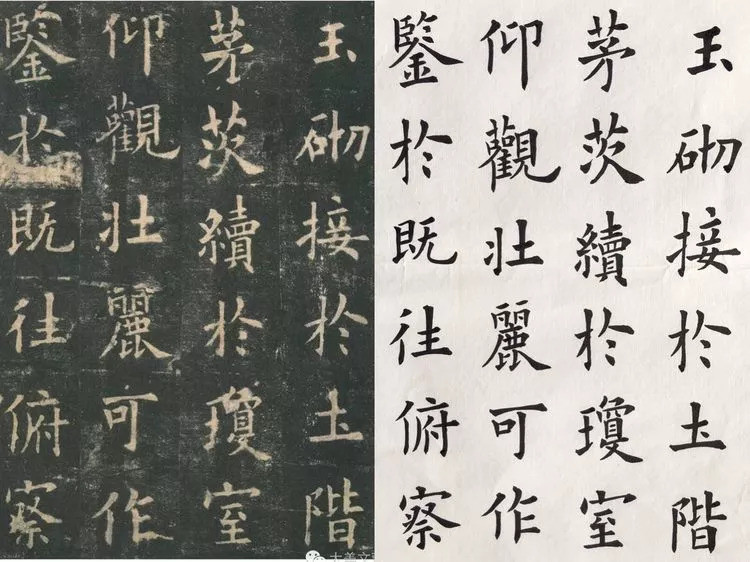 玉砌接於土階
茅茨續於瓊室
仰觀壯麗可作
鑒於既往俯察
玉砌接於土階
茅茨續於瓊室
仰觀壯麗可作
鑒於既往俯察